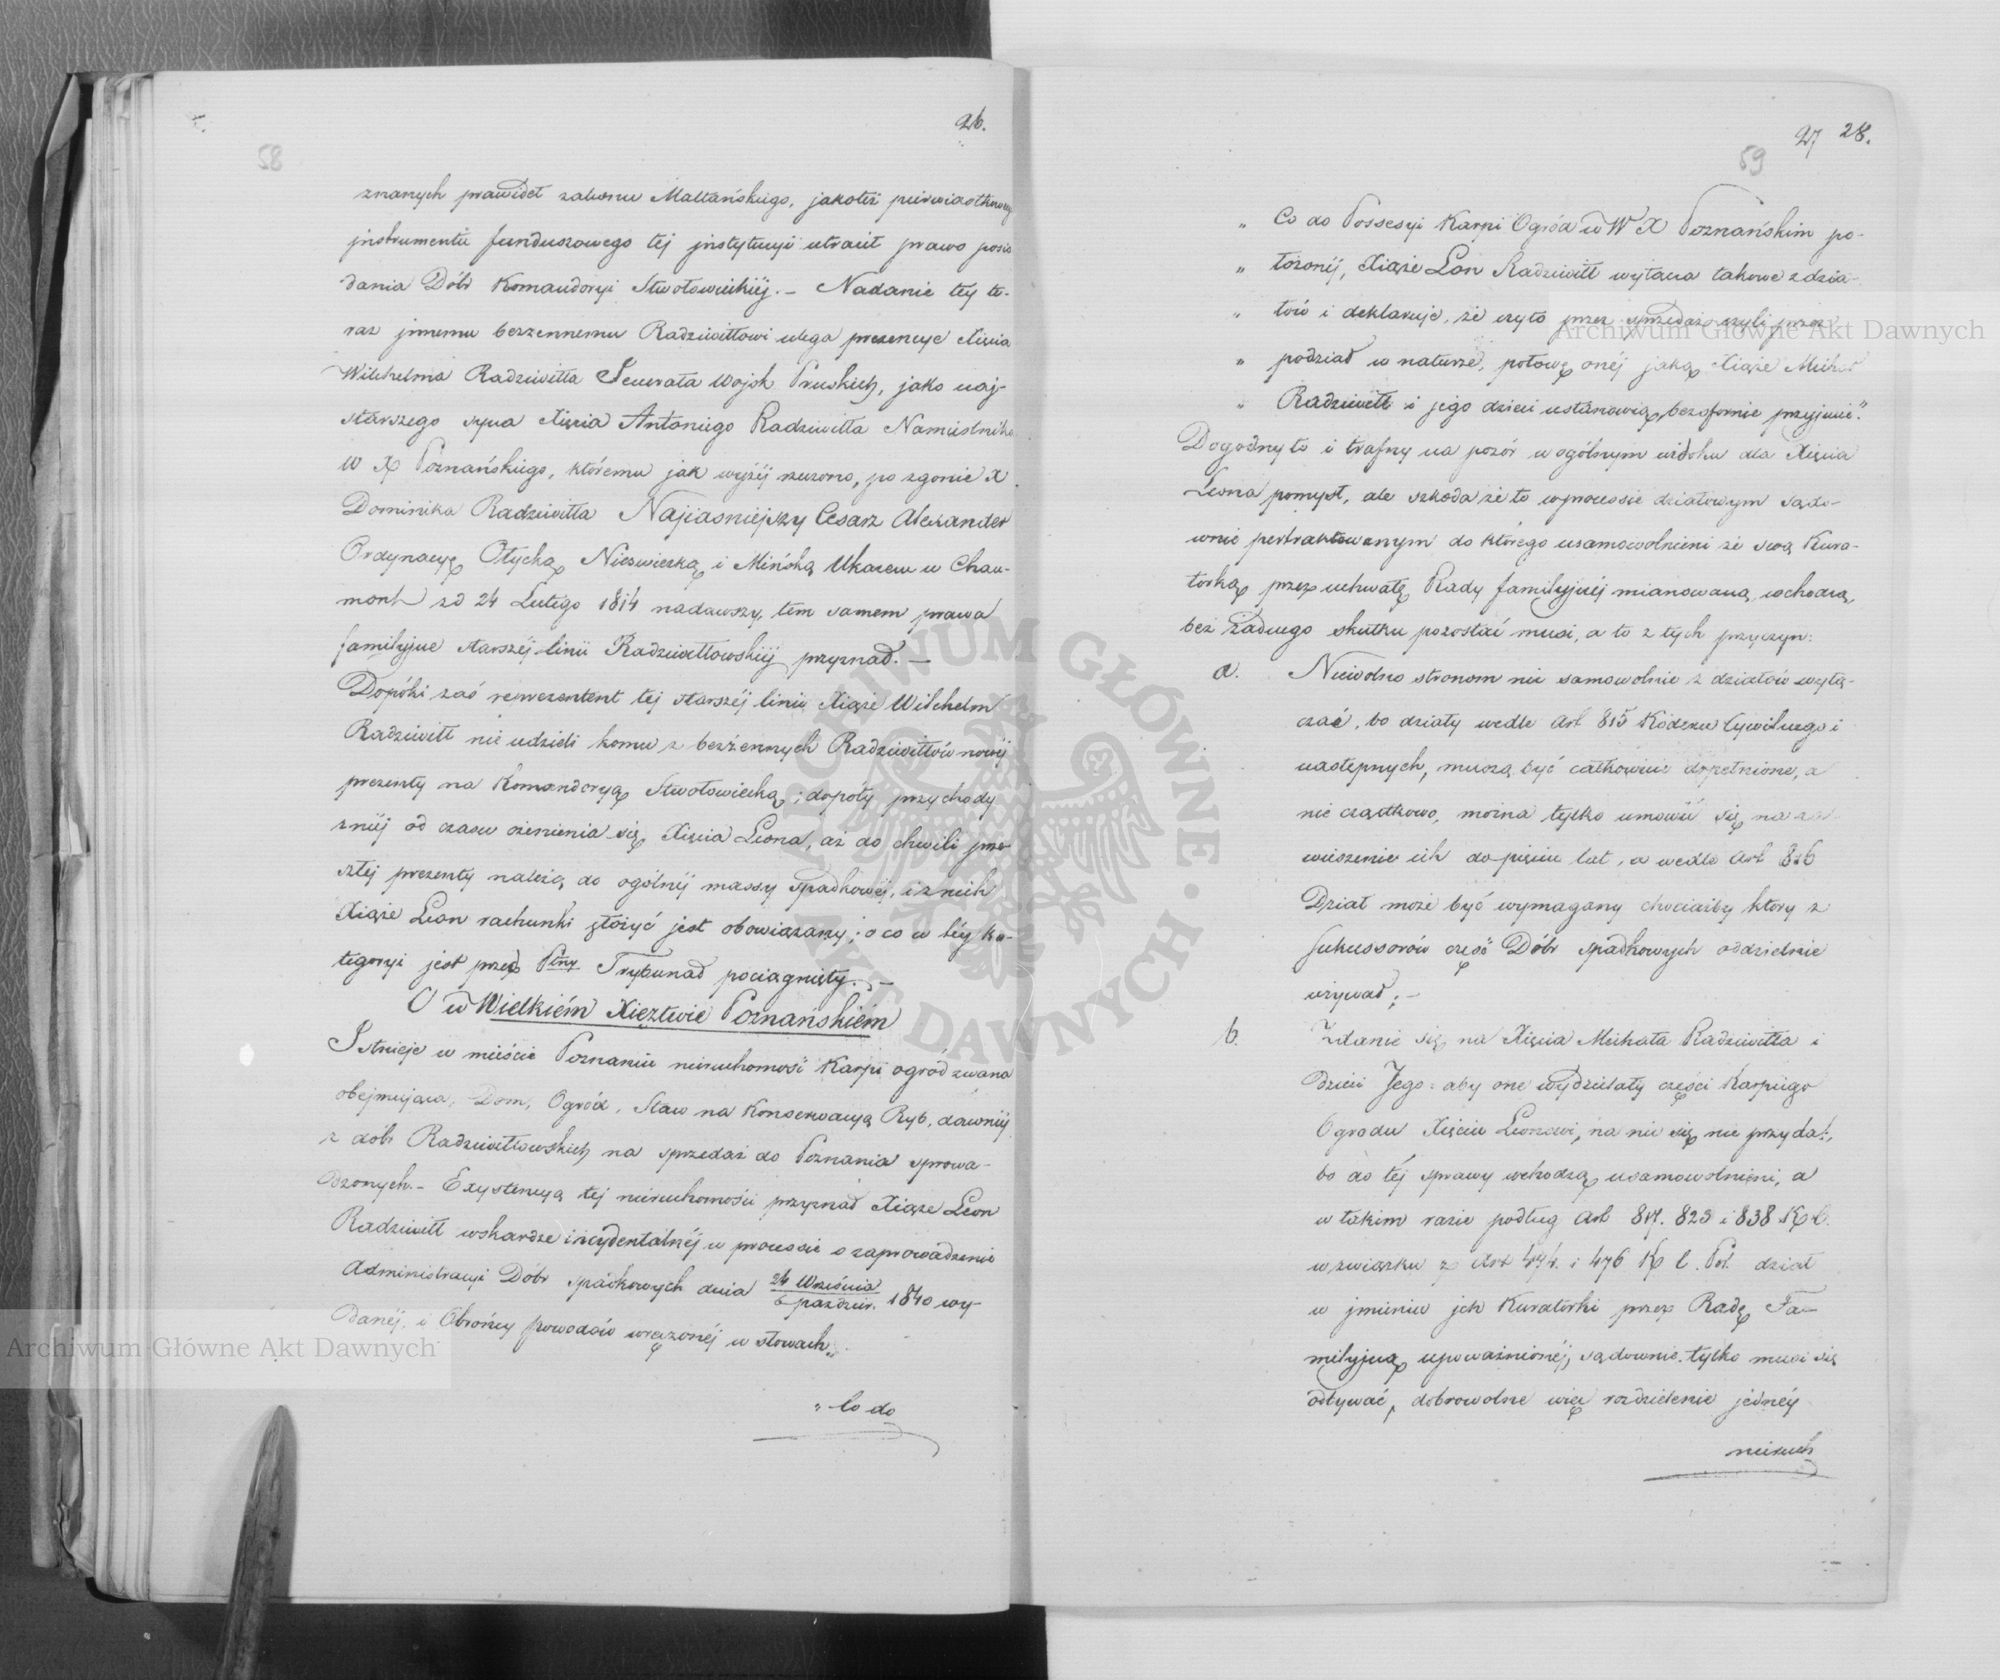 26.
58
znanych prawideł zakonu Maltańskiego, jakoteż pierwiastkowy
jnstrumentu funduszowego tej jnstytucyi utracił prawo posia
dania Dóbr Komandoryi Stwołowickiéj. — Nadanie tey te-
raz jnnemu bezżennemu Radziwiłłowi ulega prezencye Xięcia
Wilchelma Radziwiłła Jenerała Wojsk Pruskich, jako naj-
starszego syna Xięcia Antoniego Radziwiłła Namiestnika
W X Poznańskiego, któremu jak wyżéj rzeczono, po zgonie X
Dominika Radziwiłła Najiaśniejszy Cesarz Alexander
Ordynacyę Ołycką, Nieswieżką i Mińską Ukazem w Chau-
mont zd 24 Lutego 1814 nadawszy, tem samem prawa
familyjne starszéj linii Radziwiłłowskiéj przyznał. —
Dopóki zaś reprezentent tej starszéj linii Xiąże Wilchelm
Radziwiłł nie udzieli komu z bezżennych Radziwiłłów nowéj
prezenty na Komandoryą Stwołowicką; dopóty przychody
z niéj od czasu ożenienia się Xięcia Leona, aż do chwili przy
szłéj prezenty należą do ogólnéj massy spadkowéj, i z nich
Xiąże Leon rachunki złożyć jest obowiązany; o co w téy ka-
tegoryi jest przed Ptny Trybunał pociągnięty. —
C w Wielkiém Xięztwie Poznańskiem
Istnieje w mieście Poznaniu nieruchomość Karpi ogród zwana
obejmująca, Dom, Ogród, Staw na Konserwacyą Ryb, dawniéj
z dóbr Radziwiłłowskich na sprzedaż do Poznania sprowa-
dzonych. — Exystencyą téj nieruchomości przyznał Xiąże Leon
Radziwiłł w skardze incydentalnéj w processie o zaprowadzenie
Administracyi Dóbr spadkowych dnia 24 Września
6 paździer. 1840 wy-
danéj, i Obrońcy powodów wręczonéj w słowach„
„Co do
27 28.
59
„ Co do Possesyi Karpi Ogród w W X Poznańskim po-
„ łożonéj, Xiąże Leon Radziwiłł wyłącza takowe z dzia-
„ łów i deklaruje, że czyto przez sprzedaż czyli przez
„ podział w naturze, połowę onéj jaką Xiąże Michał
„ Radziwiłł i jego dzieci ustanowią, bezspornie przyjmie."
Dogodny to i trafny na pozór w ogólnym widoku dla Xięcia
Leona pomysł, ale szkoda że to w processie działowym sądo-
wnie pertraktowanym do którego usamowolnieni ze swą Kura-
torką przez uchwałę Rady familyjnéj mianowaną, wchodzą,
bez żadnego skutku pozostać musi, a to z tych przyczyn:
a. Niewolno stronom nic samowolnie z działów wyłą-
czać, bo działy wedle Art 815 Kodexu Cywilnego i
następnych, muszą być całkowicie dopełnione, a
nie cząstkowo, można tylko umówić się na za-
wieszenie ich do pięciu lat, a wedle Art 816
Dział może być wymagany chociażby który z
sukcessorów część Dóbr spadkowych oddzielnie
używał; —
b. Zdanie się na Xięcia Michała Radziwiłła i
dzieci Jego: aby one wydzielały części Karpiego
Ogrodu Xięciu Leonowi, na nic się nie przyda!,
bo do téj sprawy wchodzą usamowolnieni, a
w takim razie podług Art 817. 823 i 838 K C.
w związku z Art 474. i 476 K C. Pol. dział
w jmieniu jch Kuratorki przez Radę Fa-
milyjną upoważnionéj, sądownie tylko musi się
odbywać, dobrowolne więc rozdzielenie jednéy
nieruch
Archiwum Główne Akt Dawnych
Archiwum Główne Akt Dawnych
ARCHIWUM GŁÓWNE AKT DAWNYCH